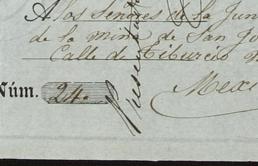 A los Señores de la Jun
de la mina de San Jo
Calle de Tiburcio
Mexi
Núm. 24.